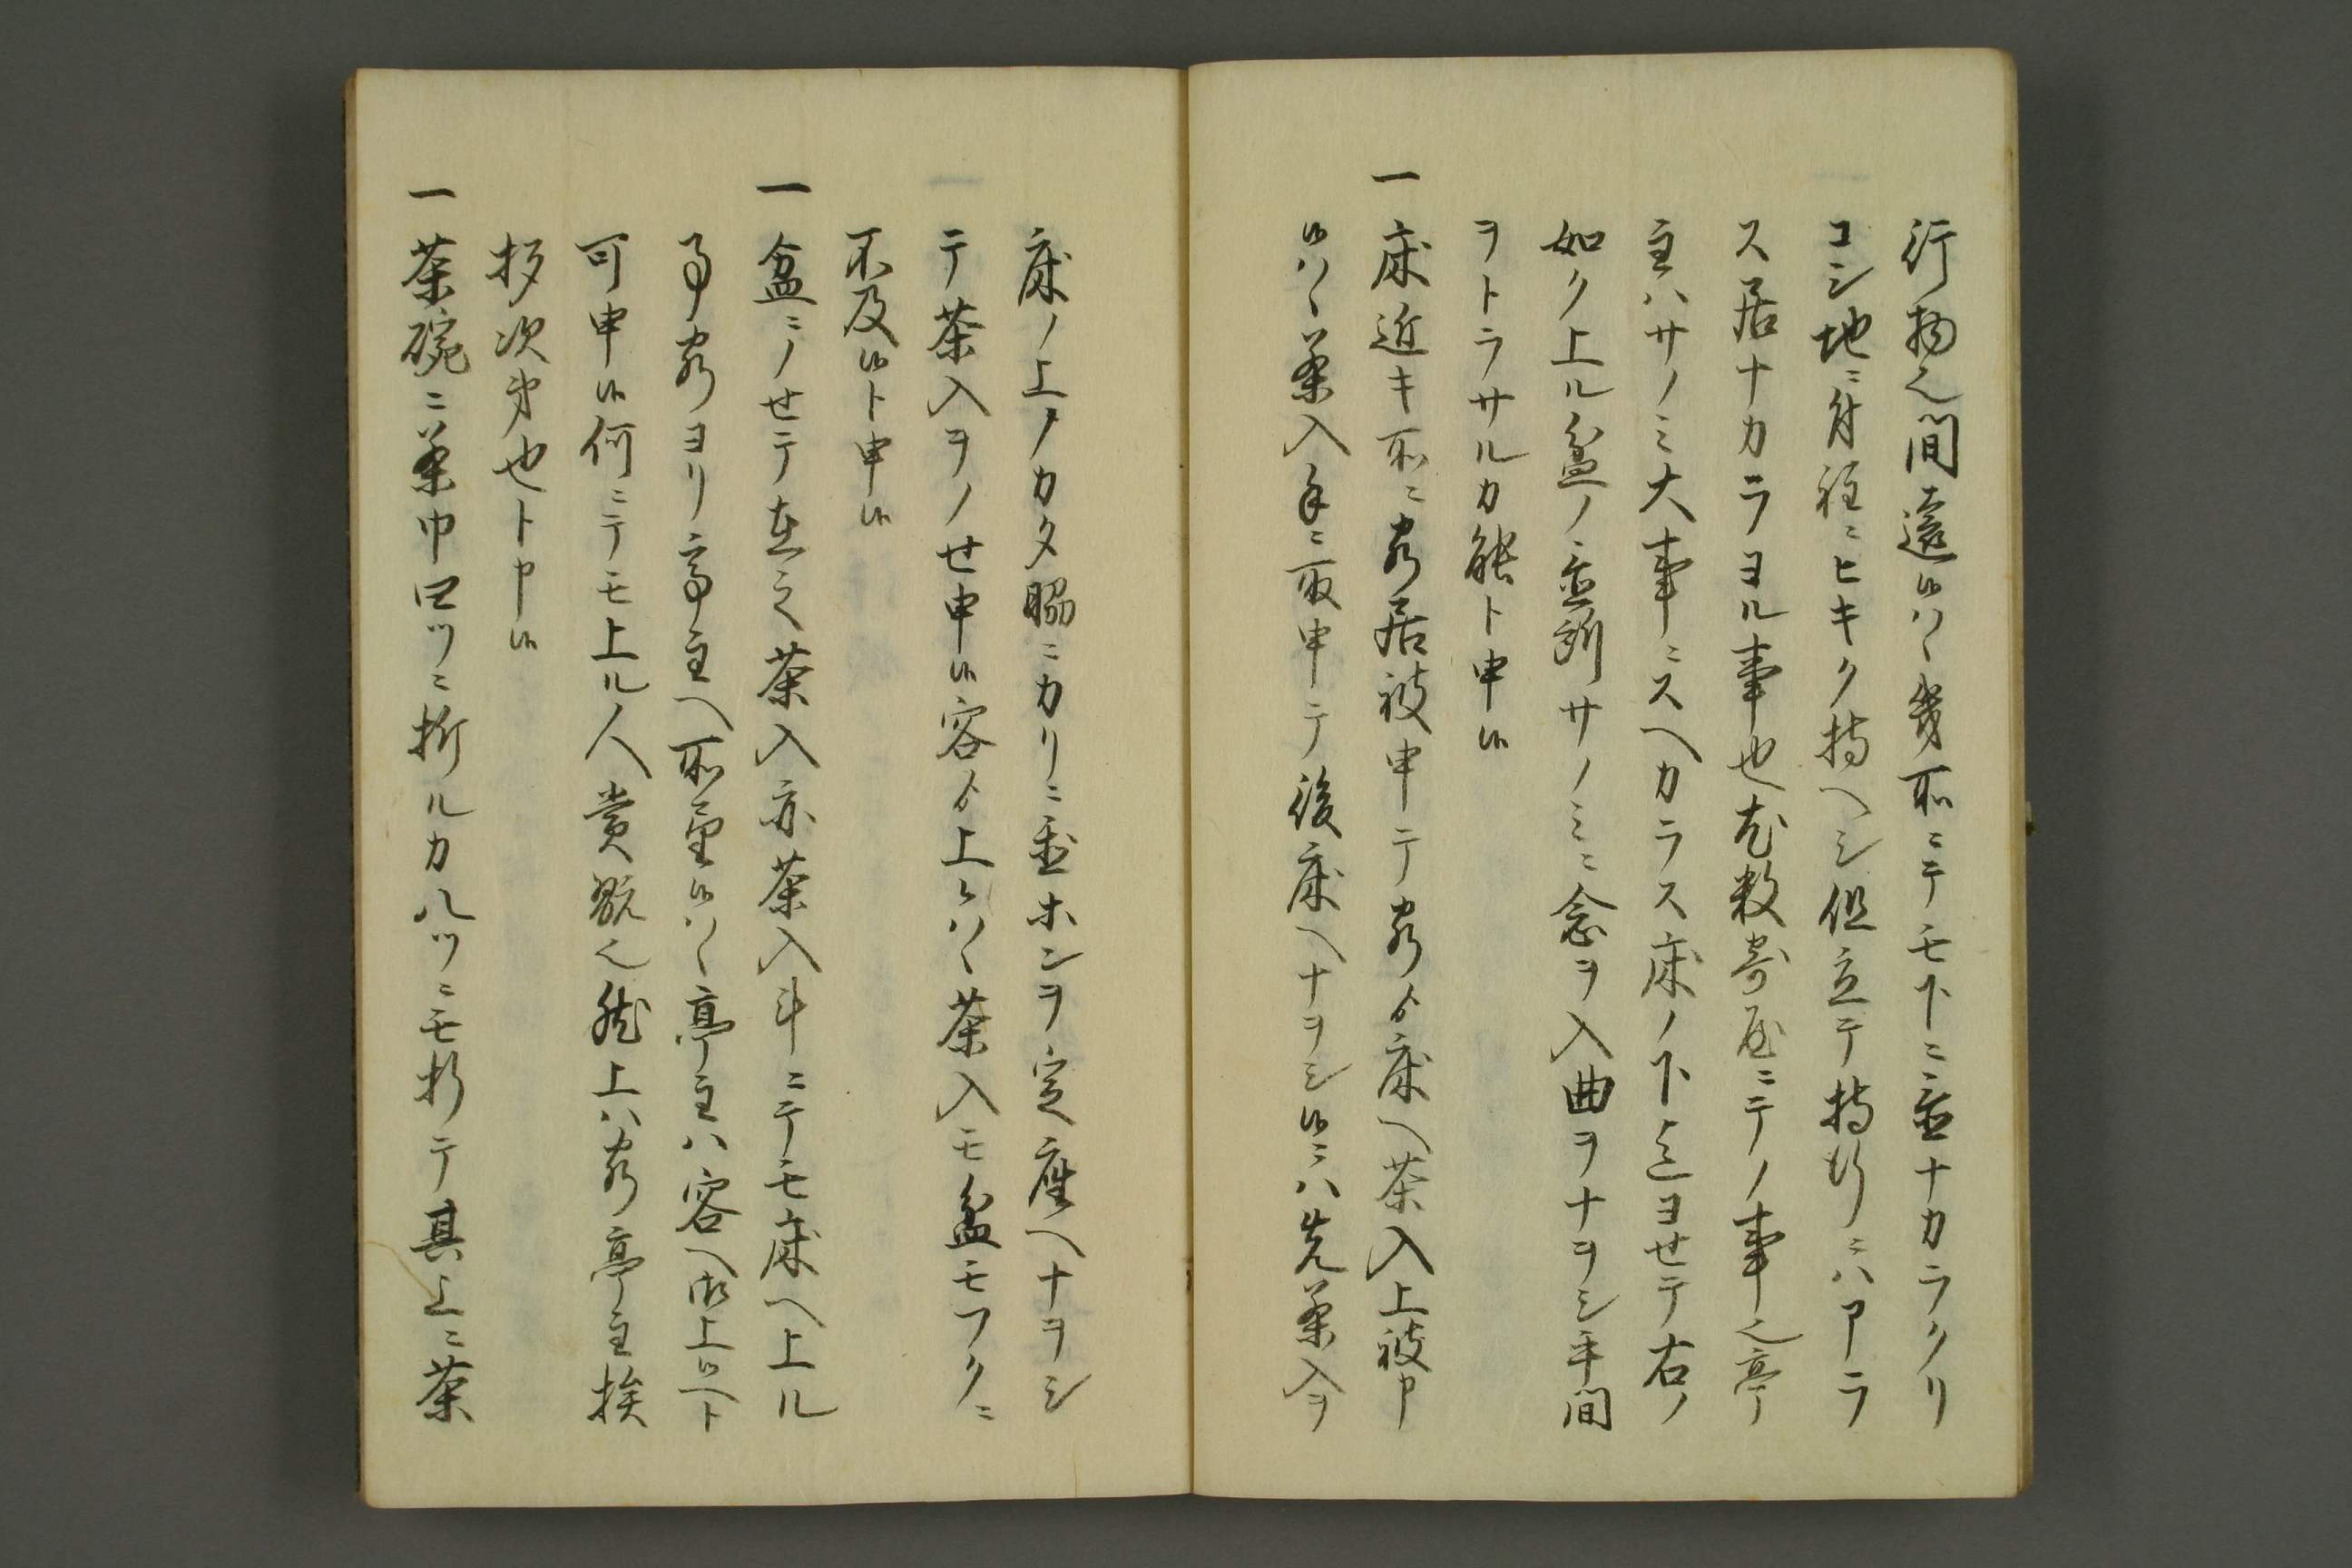 行物也間遠候ハヽ幾所ニテモ下ニ置ナカラクリ
コシ地ニ付程ニヒキク持ヘシ但立テ持行ニハアラ
ス居ナカラヨル事也尤数寄屋ニテノ事也亭
主ハサノミ大事ニスヘカラス床ノ下迄ヨセテ右ノ
如ク上ル盆ノ置所サノミニ念ヲ入曲ヲナヲシ手間
ヲトラサルカ能ト申候
一床近キ所ニ客居被申テ客ゟ床ヘ茶入上被申
候ハヽ茶入手ニ取申テ後床ヘナヲシ候ニハ先茶入ヲ
床ノ上ノカタ脇ニカリニ置ホンヲ定座ヘナヲシ
テ茶入ヲノせ申候客ゟ上候ハヽ茶入モ盆モフクニ
不及候ト申候
一盆ニノせテ在之茶入亦茶入斗ニテモ床ヘ上ル
事客ヨリ亭主ヘ所望候ハヽ亭主ハ客ヘ御上候ヘト
可申候何ニテモ上ル人賞翫也然上ハ客亭主挨
拶次第也ト申候
一茶碗ニ茶巾四ツニ折ルカ八ツニモ折テ其上ニ茶